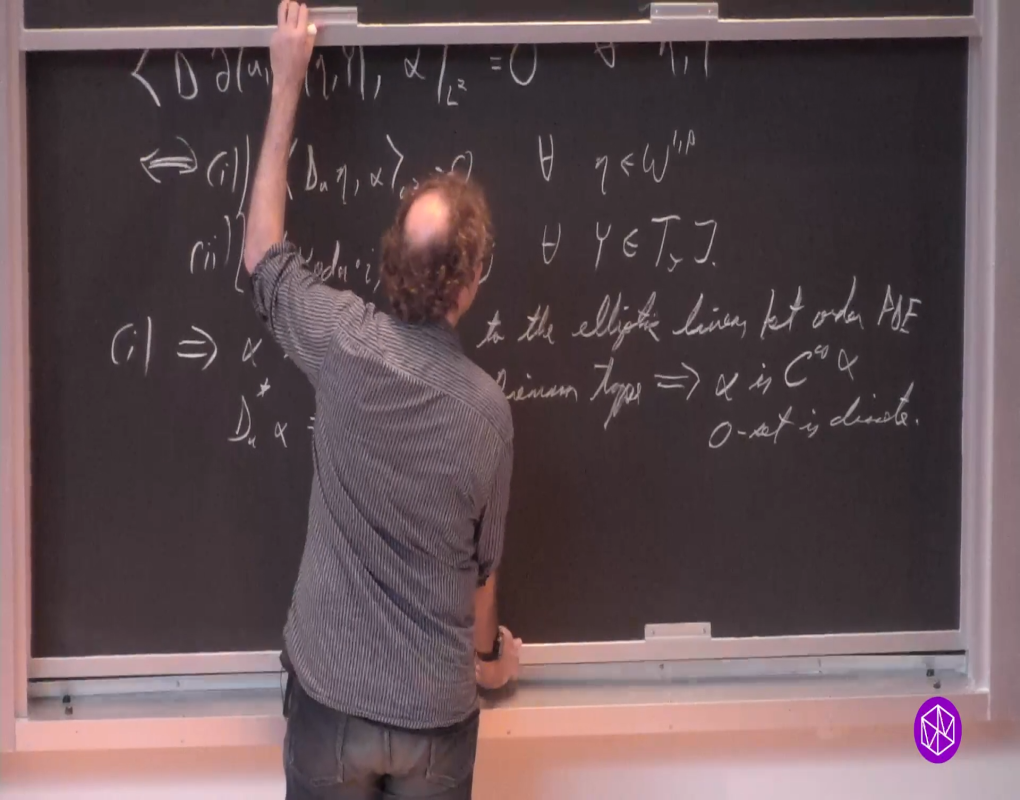 ⟨D ∂(u, (η, Y), α⟩_{L²} = 0 ∀ η, Y
⟺ (i) ⟨D_u η, α⟩ = 0 ∀ η ∈ W^{1,p}
(ii) Y∘du∘i, ∀ Y ∈ T_J J.
(i) ⟹ α to the elliptic linear 1st order PDE
D_u^* α = type ⟹ α is C^∞ &
0-set is discrete.